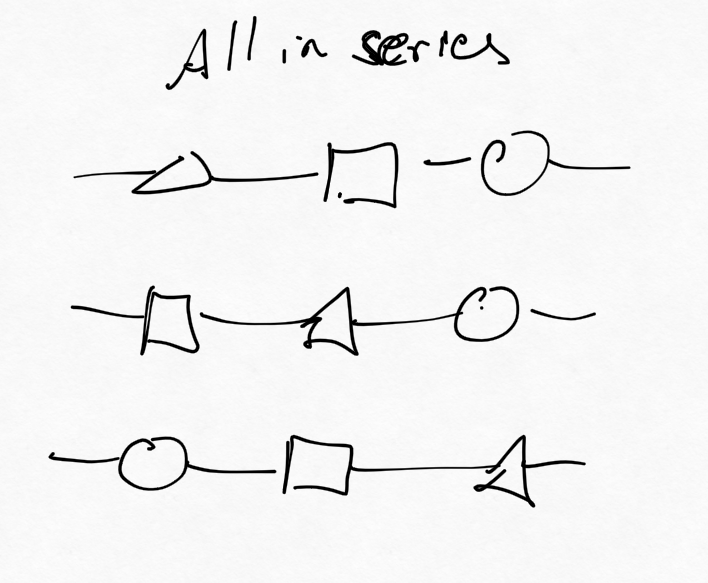 All in series